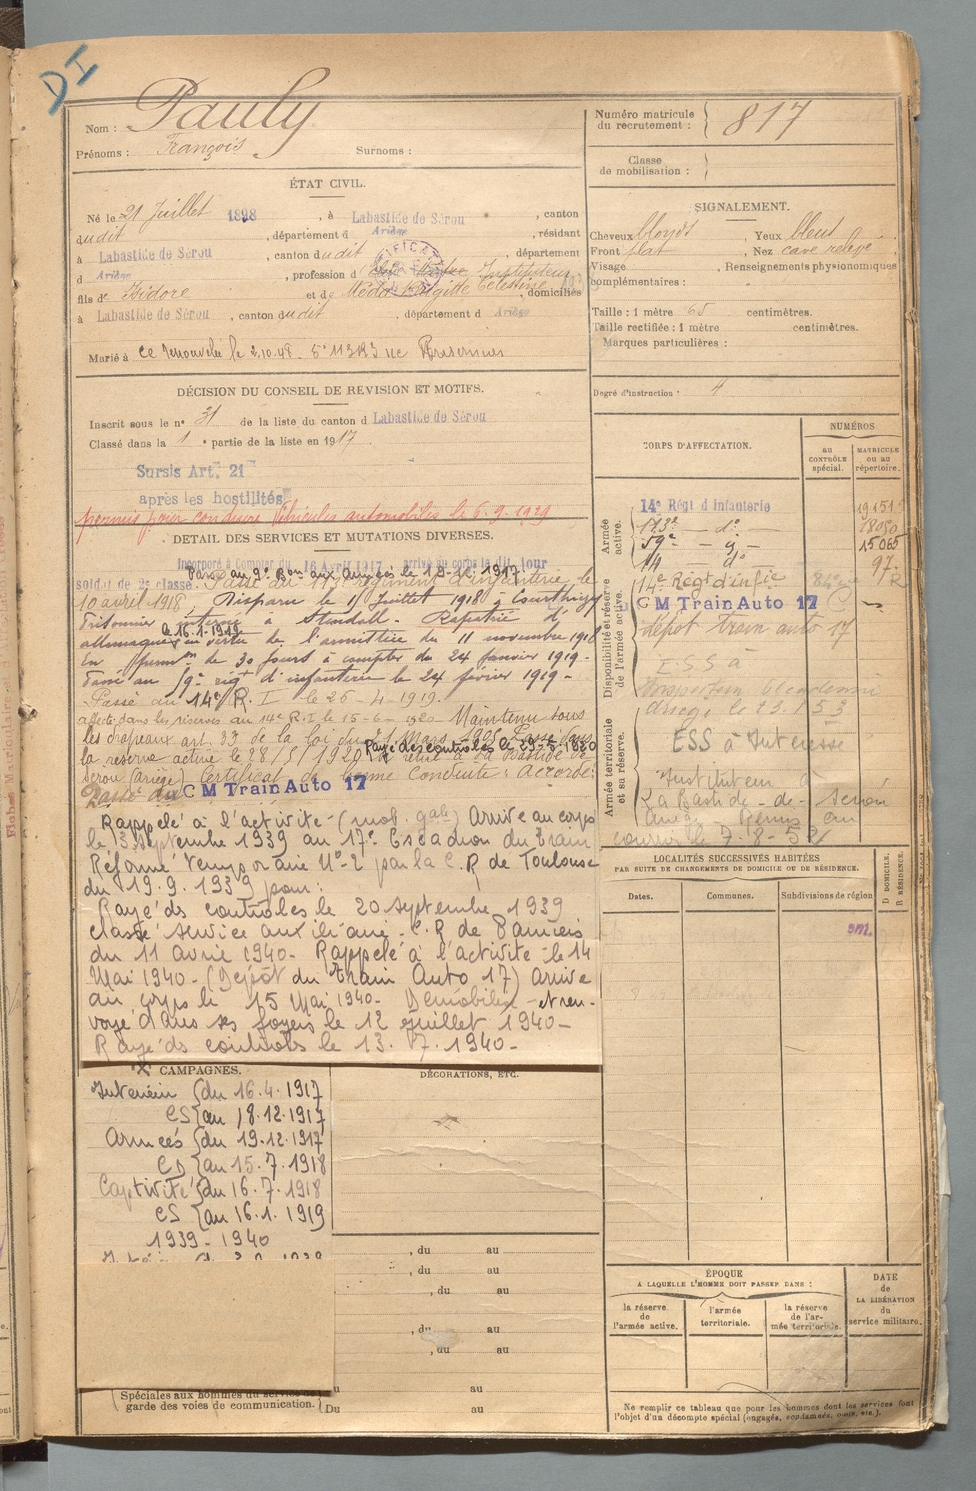 DI
Nom : Pauly
Prénoms : François Surnoms :
Numéro matricule du recrutement : 817
Classe de mobilisation :
ÉTAT CIVIL.
Né le 21 Juillet 1898, à Labastide de Sérou, canton
dudit, département d Ariège, résidant
à Labastide de Sérou, canton dudit, département
d Ariège, profession d Instituteur
fils de Isidore et de Brigitte Célestine, domiciliés
à Labastide de Sérou, canton dudit, département d Ariège
Marié à
SIGNALEMENT.
Cheveux blonds Yeux bleus
Front plat Nez cave relevé
Visage Renseignements physionomiques
complémentaires :
Taille : 1 mètre 65 centimètres.
Taille rectifiée : 1 mètre centimètres.
Marques particulières :
Degré d'instruction : 4
DÉCISION DU CONSEIL DE REVISION ET MOTIFS.
Inscrit sous le n° 31 de la liste du canton d Labastide de Sérou
Classé dans la 1e partie de la liste en 1917
Sursis Art. 21
après les hostilités
permis pour conduire Véhicules automobiles le 6.9.1929
DETAIL DES SERVICES ET MUTATIONS DIVERSES.
Incorporé à compter du 16 Avril 1917, arrivé au corps le dit jour
soldat de 2e classe.
Passé au 9e Bon aux Armées le
10 avril 1918, Disparu le 15 Juillet 1918 à Courthiezy
Prisonnier interné à Stendall. Rapatrié d'
allemagne le 16.1.1919 en vertu de l'armistice du 11 novembre 1918
En de 30 jours à compter du 24 janvier 1919.
Passé au 59e régt d'infanterie le 24 février 1919.
Passé au 14e R. I le 26-4-1919.
affecté dans les réserves au 14e R.I le 15-6-1920 Maintenu sous
les drapeaux art. 33 de la loi du 21 Mars 1905 Passé dans
la réserve active le 28/5/1920 Rayé des contrôles le
Serou (ariège) Certificat de bonne Conduite : Accordé
Passé au C M Train Auto 17
Rappelé à l'activité (mob. gale) Arrivé au corps
le 13 Septembre 1939 au 17e Escadron du train
Réformé Temporaire N° 2 par la C. R de Toulouse
du 19.9.1939 pour :
Rayé ds contrôles le 20 septembre 1939
Classé service auxiliaire - C.R de Pamiers
du 11 avril 1940- Rappelé à l'activité le 14
Mai 1940- (Dépôt du train Auto 17) Arrivé
au corps le 15 Mai 1940- Démobilisé et ren-
voyé dans ses foyers le 12 juillet 1940-
Rayé ds contrôles le 13.7.1940-
CORPS D'AFFECTATION.
NUMÉROS
au CONTRÔLE spécial.
MATRICULE ou au répertoire.
Armée active.
14e Régt d'infanterie
113e - do
59e - do
14 do
15065
Disponibilité et réserve de l'armée active.
14e Régt d'infie
C M Train Auto 17
dépôt train auto 17
E.S.S à
ariège le 23.1.53
Armée territoriale et sa réserve.
ESS à Interesse
Instituteur à
La Bastide-de-Serou
courrier le 7-8-5
LOCALITÉS SUCCESSIVES HABITÉES
PAR SUITE DE CHANGEMENTS DE DOMICILE OU DE RÉSIDENCE.
Dates. Communes. Subdivisions de région
D DOMICILE. R RÉSIDENCE.
CAMPAGNES.
Intérieur du 16.4.1917
CS au 18.12.1917
Armées du 19.12.1917
CD au 15.7.1918
Captivité du 16.7.1918
CS au 16.1.1919
1939-1940
DÉCORATIONS, ETC.
, du au
, du au
, du au
, du au
, du au
au
Spéciales aux hommes du service de
garde des voies de communication. Du au
ÉPOQUE
A LAQUELLE L'HOMME DOIT PASSER DANS :
la réserve de l'armée active.
l'armée territoriale.
la réserve de l'armée territoriale.
DATE de LA LIBÉRATION du service militaire.
Ne remplir ce tableau que pour les hommes dont les services font
l'objet d'un décompte spécial (engagés, condamnés, omis, etc.).